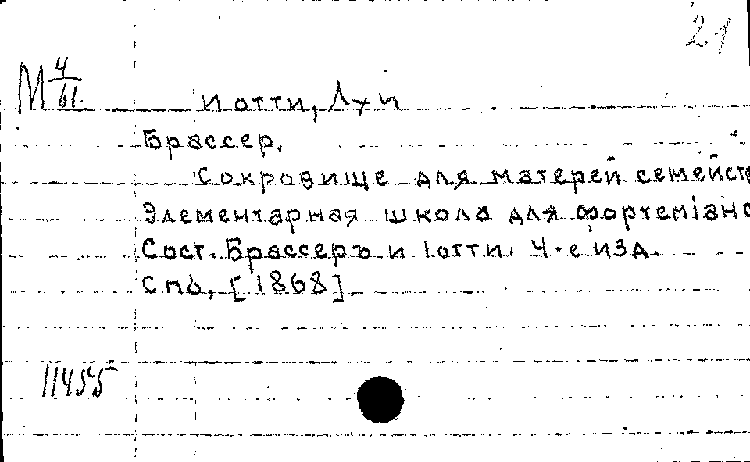 21
М 4/61.
Иотти, Луи
Брассер.
Сокровище для матерей семейств
Элементарная школа для фортепіано
Сост. Брассеръ и Іотти. 4-е изд.
Спб, [1868]
11455